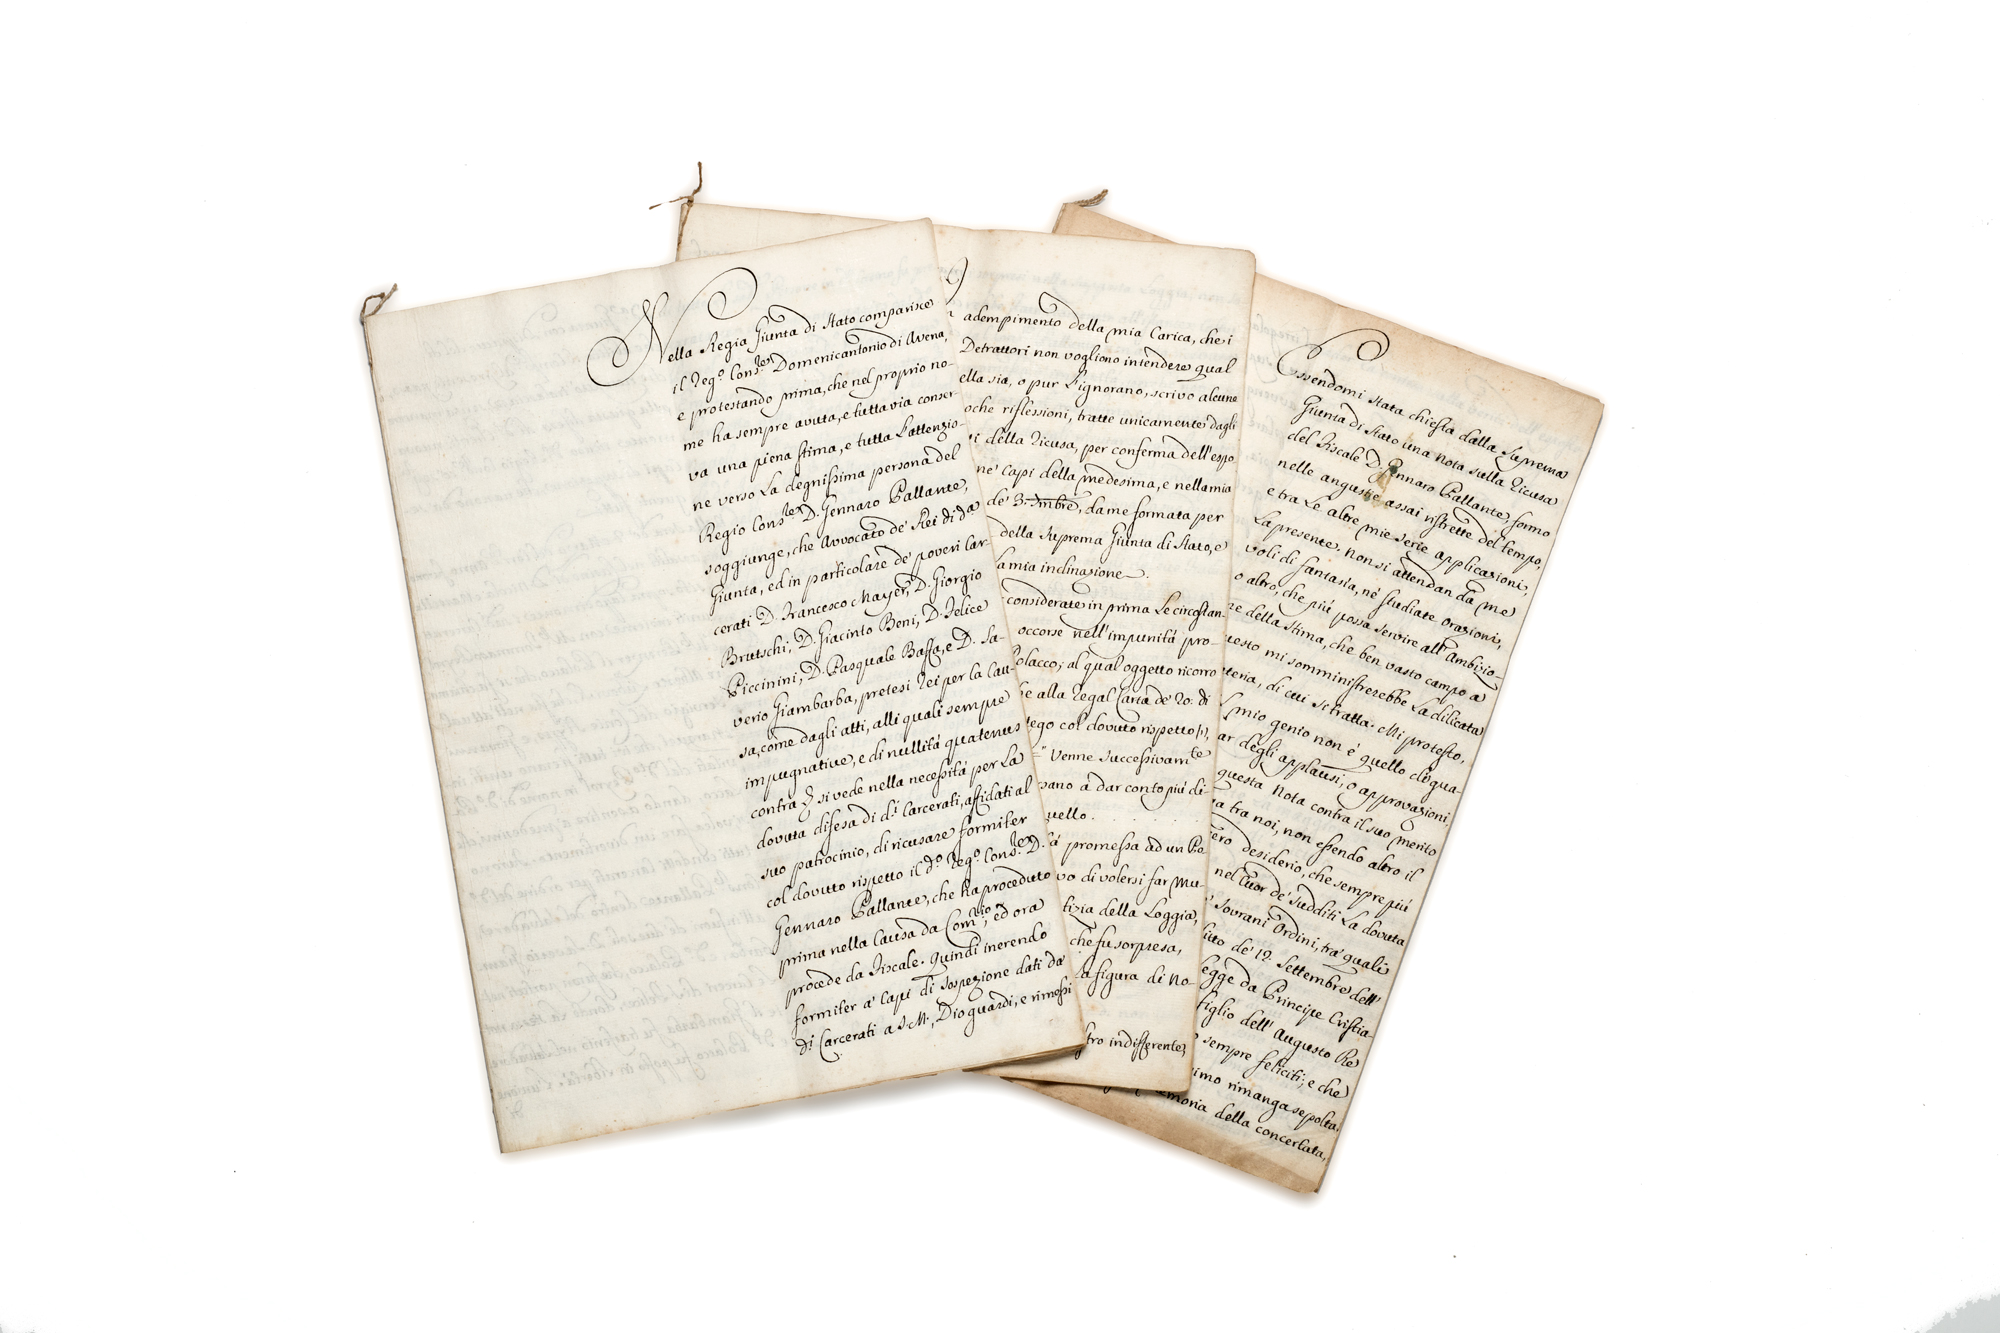 Nella Regia Giunta di Stato comparisce
il Reg.º Cons.er Domenicantonio di Avena,
e protestando prima, che nel proprio no-
me ha sempre avuta, e tuttavia conser-
va una piena stima, e tutta l'attenzio-
ne verso la degnissima persona del
Regio Cons.er D. Gennaro Pallante,
soggiunge, che Avvocato de' Rei di da
Giunta, ed in particolare de' poveri Car-
cerati D. Francesco Mayer, D. Giorgio
Brutschi, D. Giacinto Beni, D. Felice
Piccinini, D. Pasquale Baffa, e D. Sa-
verio Giambarba, pretesi rei per la Cau-
sa, come dagli atti, alli quali sempre
impugnative, e di nullità quatenus
contra si vede nella necessità per la
dovuta difesa di d.i Carcerati, affidati al
suo patrocinio, di ricusare formiter
col dovuto rispetto il d.º Reg.º Cons.er D.
Gennaro Pallante, che ha proceduto
prima nella Causa da Com.rio, ed ora
procede da Fiscale. Quindi inerendo
formiter a' Capi di sospezione dati da
d.i Carcerati a S. M., Dio guardi, e rimessi
adempimento della mia Carica, che i
Detrattori non vogliono intendere qual
ella sia, o pur l'ignorano, scrivo alcune
oche riflessioni, tratte unicamente dagli
i della Ricusa, per conferma dell'espo
ne' Capi della medesima, e nella mia
de' 3. , da me formata per
della Suprema Giunta di Stato, e
la mia inclinazione.
considerate in prima le circostan-
occorse nell'impunità pro-
olacco; al qual oggetto ricorro
e alla Regal Carta de' 20: di
ego col dovuto rispetto
" Venne successivam.te
sano à dar conto più di-
uello . . . . .
à promessa ad un Pa
vo di volersi far Mu-
tizia della Loggia,
che fu sorpresa,
la figura di No-
tro indifferente,
Essendomi stata chiesta dalla Suprema
Giunta di Stato una Nota sulla Ricusa
del Fiscale D. Gennaro Pallante, formo
nelle angustie assai ristrette del tempo,
e tra le altre mie serie applicazioni,
la presente. Non si attendan da me
voli di fantasia, né studiate orazioni,
o altro, che più possa servire all'ambizio-
ne della stima, che ben vasto campo a
uesto mi somministrerebbe la dilicata
teria, di cui si tratta. Mi protesto,
mio genio non è quello di gua-
ar degli applausi, o approvazioni,
questa Nota contra il suo merito
a tra noi, non essendo altro il
ero desiderio, che sempre più
nel Cuor de' sudditi la dovuta
Sovrani Ordini, tra' quali
iuto de' 12. Settembre dell'
egge da Principe Cristia-
figlio dell' Augusto Re
sempre feliciti; e che
imo rimanga sepolta,
emoria della concertata,